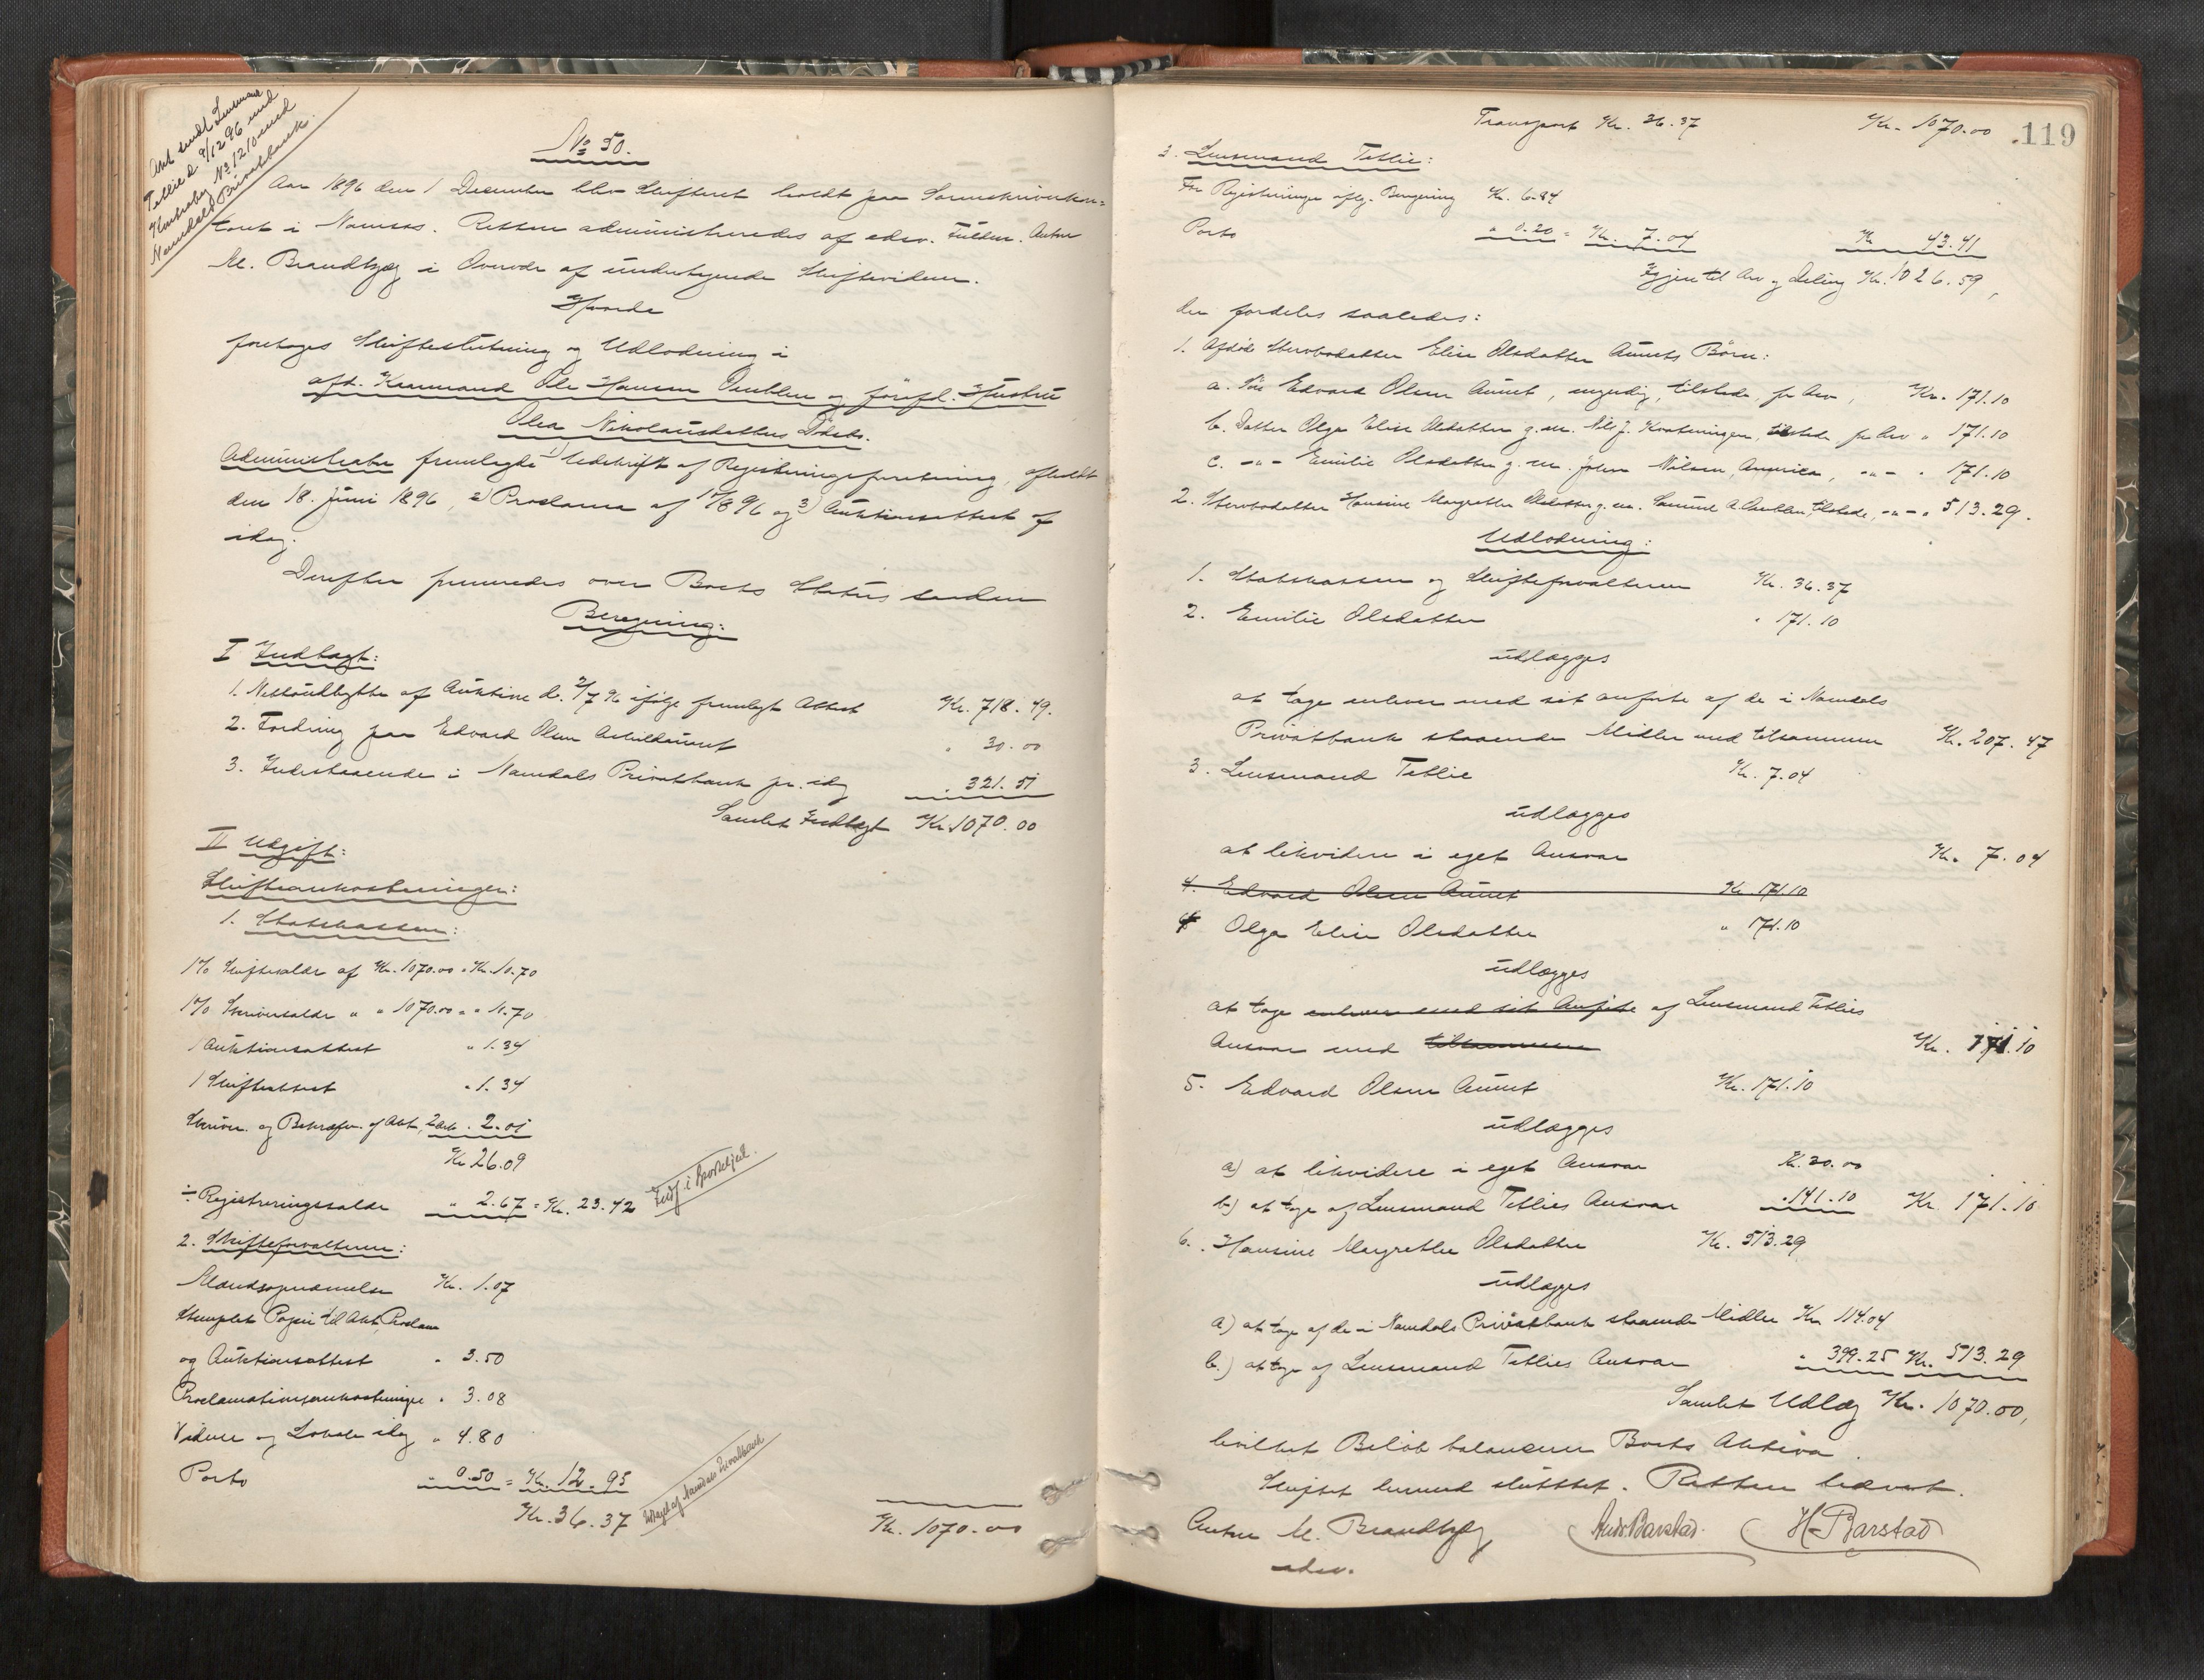 Akt sendt Lensmand
Tetlie d. 9/12 96 med
No 1210 med
Namdals Privatbank.
No 50.
Aar 1896 den 1 December blev Skifteret holdt paa Sorenskriverkon-
toret i Namsos. Retten administreredes af edsv. Fuldm. Anton
M. Brandtzæg i Overvær af undertegnede Skiftevidner.
Hvorda
foretoges Skifteslutning og Udlodning i
afd. Kaarmand Ole Hansen Devblen og foraf d. Hustru
Olea Nikolausdatters Dødsbo.
Administrator fremlagde 1) Udskrift af Registreringsforretning, afholdt
den 18. Juni 1896, 2) Proclama af 17/6 96 og 3) Auktionsattest af
idag.
Derefter fremredes over Boets Status saadan
Beregning:
I Indtægt:
1. Nettoudbytte af Auktion d. 2/7 96 ifølge fremlagt Attest Kr. 718.49.
2. Fordring paa Edvard Olsen " 30.00
3. Indestaaende i Namdals Privatbank pr. idag " 321.51
Samlet Indtægt Kr. 1070.00
II Udgift:
Skifteomkostninger:
1. Statskassen:
1% Skiftesalær af Kr. 1070.00 = Kr. 10.70
1% Skriversalær " " 1070.00 = " 10.70
1 Auktionsattest " 1.34
1 Skifteattest " 1.34
Skriver. og Bekræft. af Akt, 2 Ark " 2.01
Kr. 26.09
÷ Registreringssalær " 2.67 = Kr. 23.42
Indf. i Sporteljal.
2. Skifteforvalteren:
Mændsopnævnelse Kr. 1.07
Stemplet Papir til Akt, Proclama
og Auktionsattest " 3.50
Proclamationsomkostninger " 3.08
Vidner og Lokale idag " 4.80
Porto " 0.50 = Kr. 12.95
Kr. 36.37
af Namdals Privatbank
Kr. 1070.00
119
Transport Kr. 36.37 Kr. 1070.00
3. Lensmand Tetlie:
For Registreringen iflg. Beregning Kr. 6.84
Porto " 0.20 = Kr. 7.04 Kr. 43.41
Igjen til Arv og Deling Kr. 1026.59,
der fordeles saaledes:
1. Afdøde Stervbodatter Elise Olsdatter Aunets Børn:
a. Søn Edvard Olsen Aunet, myndig, tilstede, for Arv, Kr. 171.10
b. Datter Olga Elise Olsdatter g. m. Nils J. Kvatningen, tilstede, for Arv " 171.10
c. -"- Emilie Olsdatter g. m. Johan Nilsen, America, -"- " 171.10
2. Stervbodatter Hansine Margrethe Olsdatter g. m. A. tilstede, -"- " 513.29.
Udlodning:
1. Statskassen og Skifteforvalteren Kr. 36.37
2. Emilie Olsdatter " 171.10
udlægges
at tage enhver med sit anførte af de i Namdals
Privatbank staaende Midler med tilsammen Kr. 207.47
3. Lensmand Tetlie Kr. 7.04
udlægges
at likvidere i eget Ansvar Kr. 7.04
4. Edvard Olsen Aunet Kr. 171.10
4 Olga Elise Olsdatter " 171.10
udlægges
at tage enhver med sit Anførte af Lensmand Tetlies
Ansvar med tilsammen Kr. 171.10
5. Edvard Olsen Aunet Kr. 171.10
udlægges
a) at likvidere i eget Ansvar Kr. 30.00
b) at tage af Lensmand Tetlies Ansvar " 141.10 Kr. 171.10
6. Hansine Margrethe Olsdatter Kr. 513.29
udlægges
a.) at tage af de i Namdals Privatbank staaende Midler Kr. 114.04
b.) at tage af Lensmand Tetlies Ansvar " 399.25 Kr. 513.29
Samlet Udlæg Kr. 1070.00,
hvilket Beløb balancerer Boets Aktiva.
Skiftet hermed sluttet. Retten hævet.
Anton M. Brandtzæg Ands Barstad. H. Barstad
edsv.